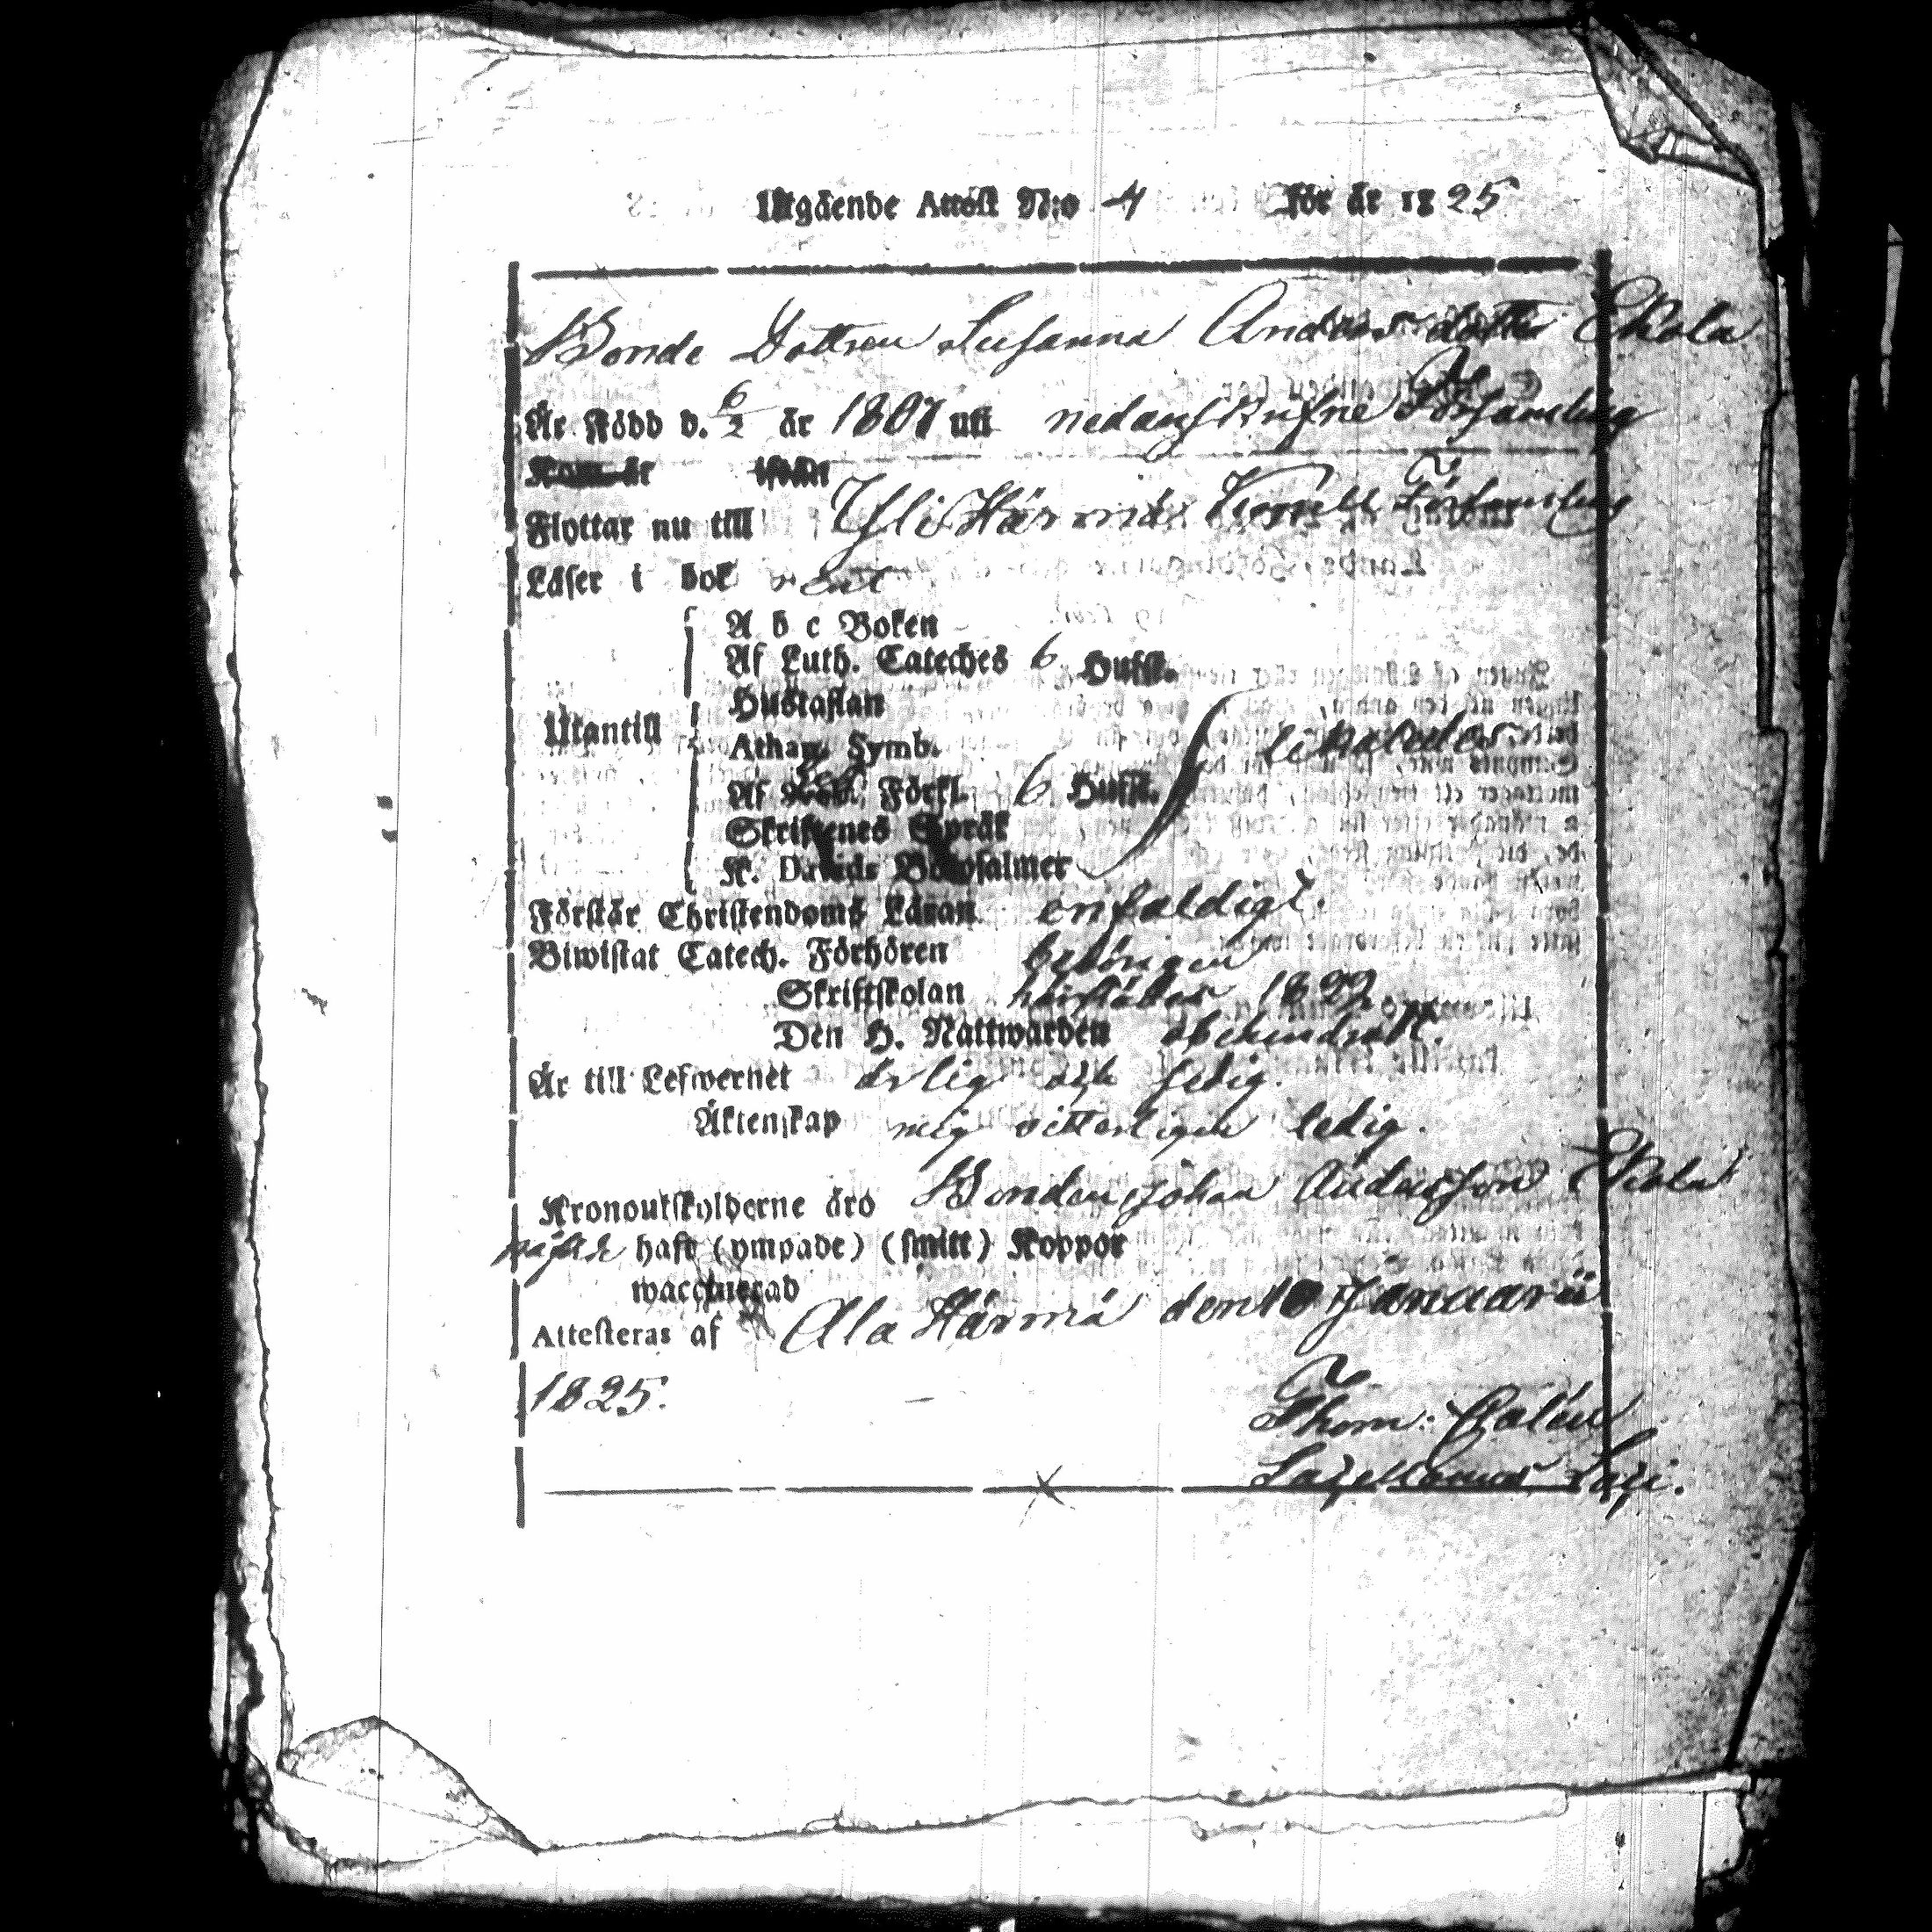 Utgående Attest N:o 4 för år 1825
Bonde Dottren Susanna Anders dotter Ekola
Är Född d. 6/2 år 1807 uti nedanskrifne Församling
Kom år ifrån
Flyttar nu till Yli Härmä Församling
Läser i bok rent
A b c Boken
Af Luth. Cateches 6 Hufst.
Hustaflan
Utantill
Athan. Symb.
Af Förkl. 6 Hufst.
Skriftenes Språk
K. Davids Botpsalmer
Förstår Christendoms Läran enfaldigt.
Biwistat Catech. Förhören
Skriftskolan härstädes 1822
Den H. Nattwarden obehindradt.
Är till Lefwernet ärlig och sedig.
Äktenskap mig vitterligen ledig.
Kronoutskylderne äro Bonden Johan Andersson Ekola
haft (ympade) (smitt) Koppor
waccinerad
Attesteras af Ala Härmä den 10 Januarii
1825.
Thom: